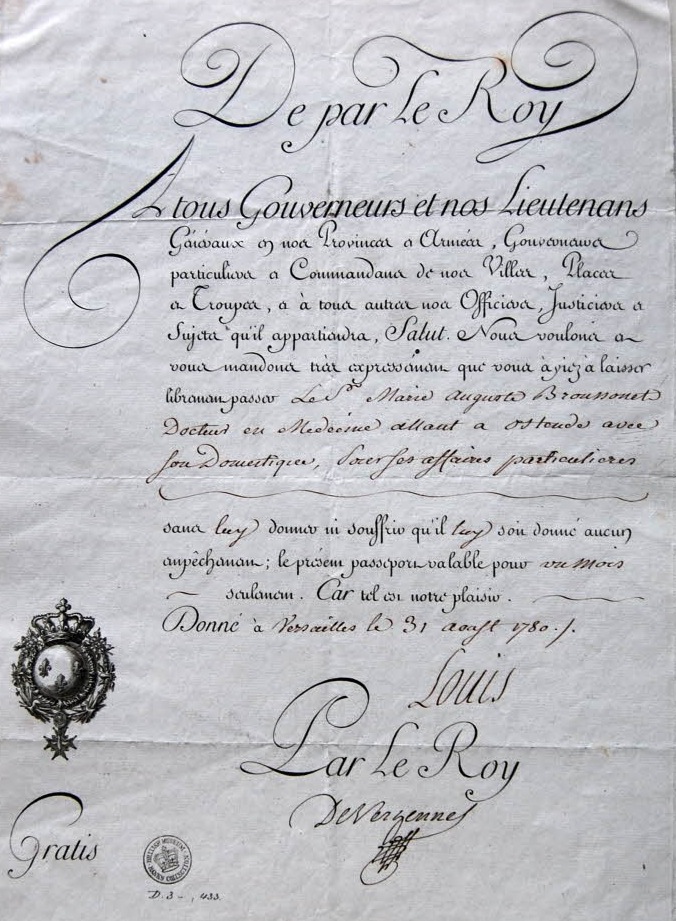 De par Le Roy
A tous Gouverneurs et nos Lieutenans
Généraux en nos Provinces et Armées, Gouverneurs
particuliers et Commandans de nos Villes, Places
et Troupes, et à tous autres nos Officiers, Justiciers et
Sujets qu'il appartiendra, Salut. Nous voulons et
vous mandons très expressément que vous ayiez à laisser
librement passer Le Sr. Marie Auguste Broussonet
Docteur en Medecine allant a ostende avec
son Domestique, Pour ses affaires particulieres
sans luy donner ni souffrir qu'il luy soit donné aucun
empêchement; le présent passeport valable pour un mois
seulement. Car tel est notre plaisir.
Donné à Versailles le 31 aoust 1780./.
Louis
Par Le Roy
De Vergennes
Gratis
D.3-, 433.